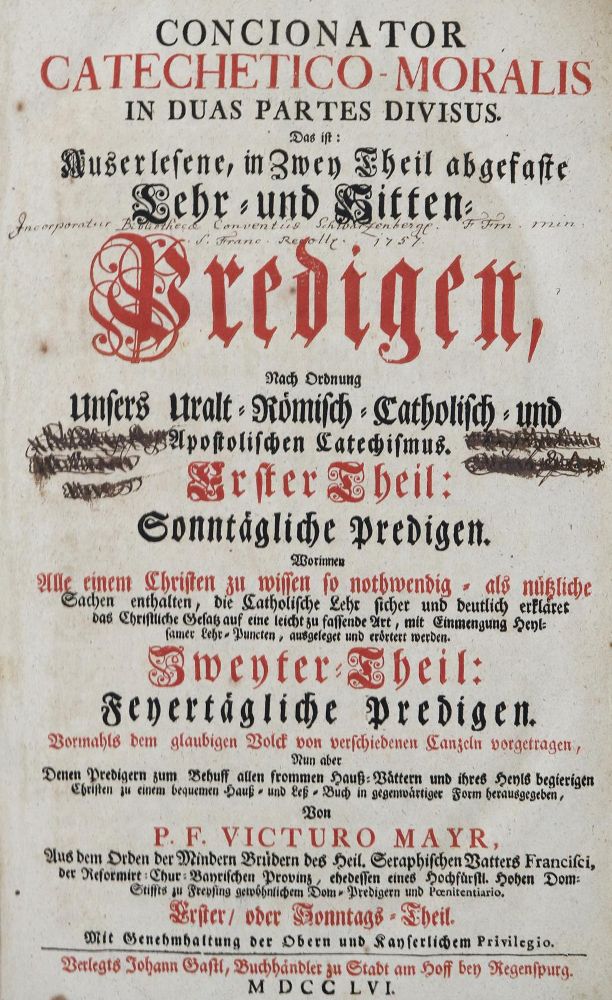 CONCIONATOR
CATECHETICO-MORALIS
IN DUAS PARTES DIVISUS.
Das ist:
Auserlesene, in Zwey Theil abgefaste
Lehr- und Sitten-
Incorporatur Bibliothecæ Conventus Schwarzenberg. F Fm. min.
S. Franc. Recolle. 1757.
Predigen,
Nach Ordnung
Unsers Uralt-Römisch-Catholisch- und
Apostolischen Catechismus.
Erster Theil:
Sonntägliche Predigen.
Worinnen
Alle einem Christen zu wissen so nothwendig- als nützliche
Sachen enthalten, die Catholische Lehr sicher und deutlich erkläret
das Christliche Gesatz auf eine leicht zu fassende Art, mit Einmengung Heyl-
samer Lehr-Puncten, ausgeleget und erörtert werden.
Zweyter-Theil:
Feyertägliche Predigen.
Vormahls dem glaubigen Volck von verschiedenen Canzeln vorgetragen,
Nun aber
Denen Predigern zum Behuff allen frommen Hauß-Vättern und ihres Heyls begierigen
Christen zu einem bequemen Hauß- und Leß-Buch in gegenwärtiger Form herausgegeben,
Von
P. F. VICTURO MAYR,
Aus dem Orden der Mindern Brüdern des Heil. Seraphischen Vatters Francisci,
der Reformirt-Chur-Bayrischen Provinz, ehedessen eines Hochfürstl. Hohen Dom-
Stiffts zu Freysing gewöhnlichem Dom-Predigern und Pœnitentiario.
Erster/ oder Sonntags-Theil.
Mit Genehmhaltung der Obern und Kayserlichem Privilegio.
Verlegts Johann Gastl, Buchhändler zu Stadt am Hoff bey Regenspurg.
M D C C L V I.